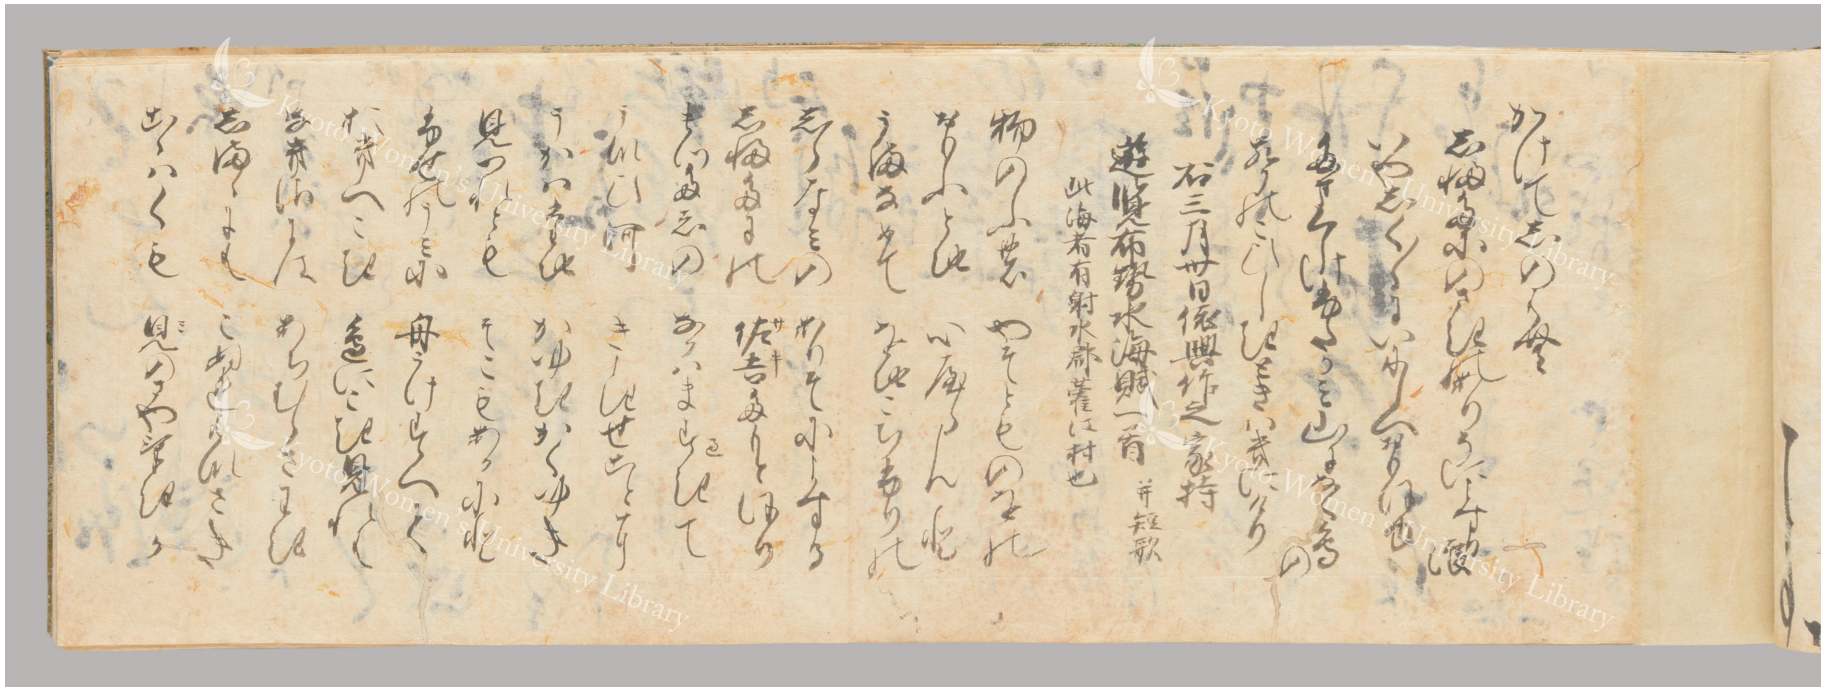 かけてしのはむ
志ふたにのさきのありそによする浪
いやしくしくにいにしへおもほゆ
たまくしけふたかみ山になく鳥の
こゑのこひしきときはきにけり
右三月卅日依興作之 家持
遊覧布勢水海賦一首 并短歌
此海者有射水郡舊江村也
物のふの やそとものをの
おもふとち 心やらんと
うまなめて うちくちふりの
しらなみの ありそによする
しふたにの 佐吉たもとほり サキ
まつたえの なかはますきて
うなひ河 きよきせことに
うかはたち かゆきかくゆき
見つれとも そこもあかにと
ふせのうみに 舟うけすへて
おきへこき 邊にこき見れは
なきさには あちむらさわき
しままには こぬれはなさき
ここはくも 見のさやけきか ミ